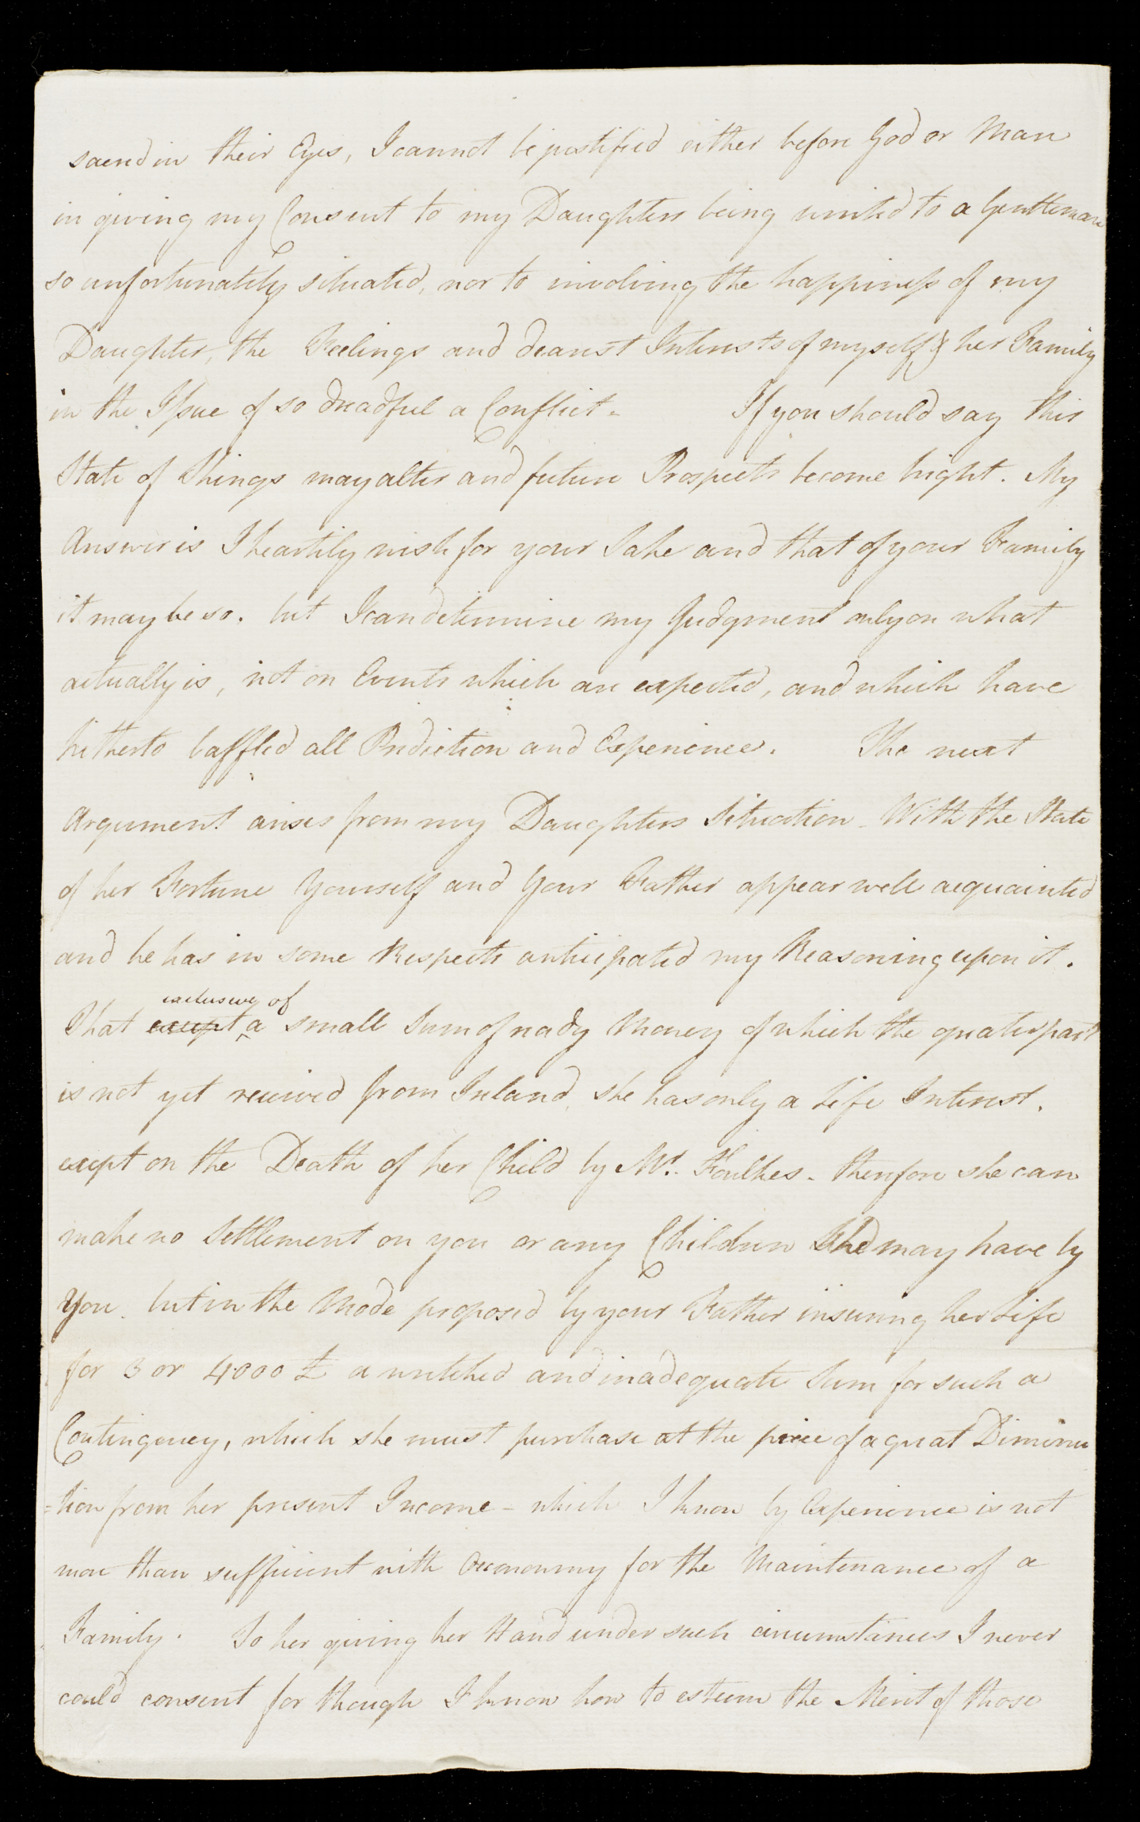 sacred in their Eyes, I cannot be justified either before God or Man
in giving my Consent to my Daughters being united to a Gentleman
so unfortunately situated, nor to involving the happiness of my
Daughter, the Feelings and dearest Interests of myself & her Family
in the Issue of so dreadful a Conflict. If you should say this
State of Things may alter and future Prospects become bright. My
Answer is I heartily wish for your Sake and that of your Family
it may be so. but I can determine my Judgment only on what
actually is, not on Events which are expected, and which have
hitherto baffled all Prediction and Experience. The next
Argument arises from my Daughters Situation. With the State
of her Fortune Yourself and Your Father appear well acquainted
and he has in some Respects anticipated my Reasoning upon it.
That except exclusive of a small Sum of ready Money of which the greatest part
is not yet received from Ireland, she has only a Life Interest.
except on the Death of her Child by Mr. Foulkes. therefore she can
make no Settlement on you or any Children She may have by
You. but in the Mode proposed by your Father insuring her Life
for 3 or 4000 £ a wretched and inadequate Sum for such a
Contingency, which she must purchase at the price of a great Diminu
=tion from her present Income - which I know by Experience is not
more than sufficient with Oeconomy for the Maintenance of a
Family. To her giving her Hand under such circumstances I never
could consent for though I know how to esteem the Merit of those